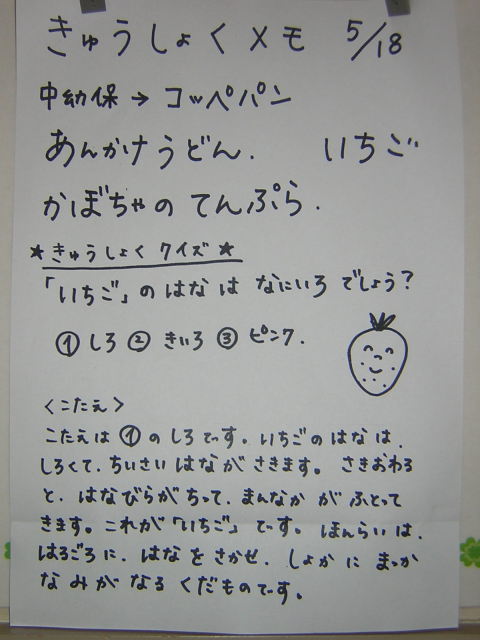 きゅうしょくメモ 5/18
中幼保→コッペパン
あんかけうどん. いちご
かぼちゃの てんぷら.
★きゅうしょく クイズ★
「いちご」の はな は なにいろ でしょう?
① しろ ② きいろ ③ ピンク.
<こたえ>
こたえは ① の しろ です。いちごの はな は、
しろくて、ちいさい はな が さきます。 さきおわる
と、はなびらが ちって、まんなか が ふとって
きます。これが「いちご」です。ほんらい は、
はるごろ に、はな を さかせ、しょか に まっか
な み が なる くだものです。